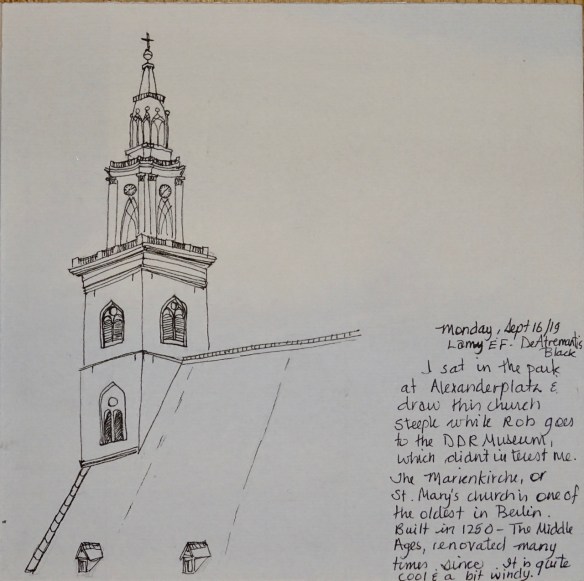 Monday, Sept 16/19
Lamy EF. DeAtramentis
Black
I sat in the park
at Alexanderplatz &
draw this church
steeple while Rob goes
to the DDR Museum,
which didn't interest me.
The Marienkirche, or
St. Mary's church is one of
the oldest in Berlin.
Built in 1250 - The Middle
Ages, renovated many
times since. It is quite
cool & a bit windy.